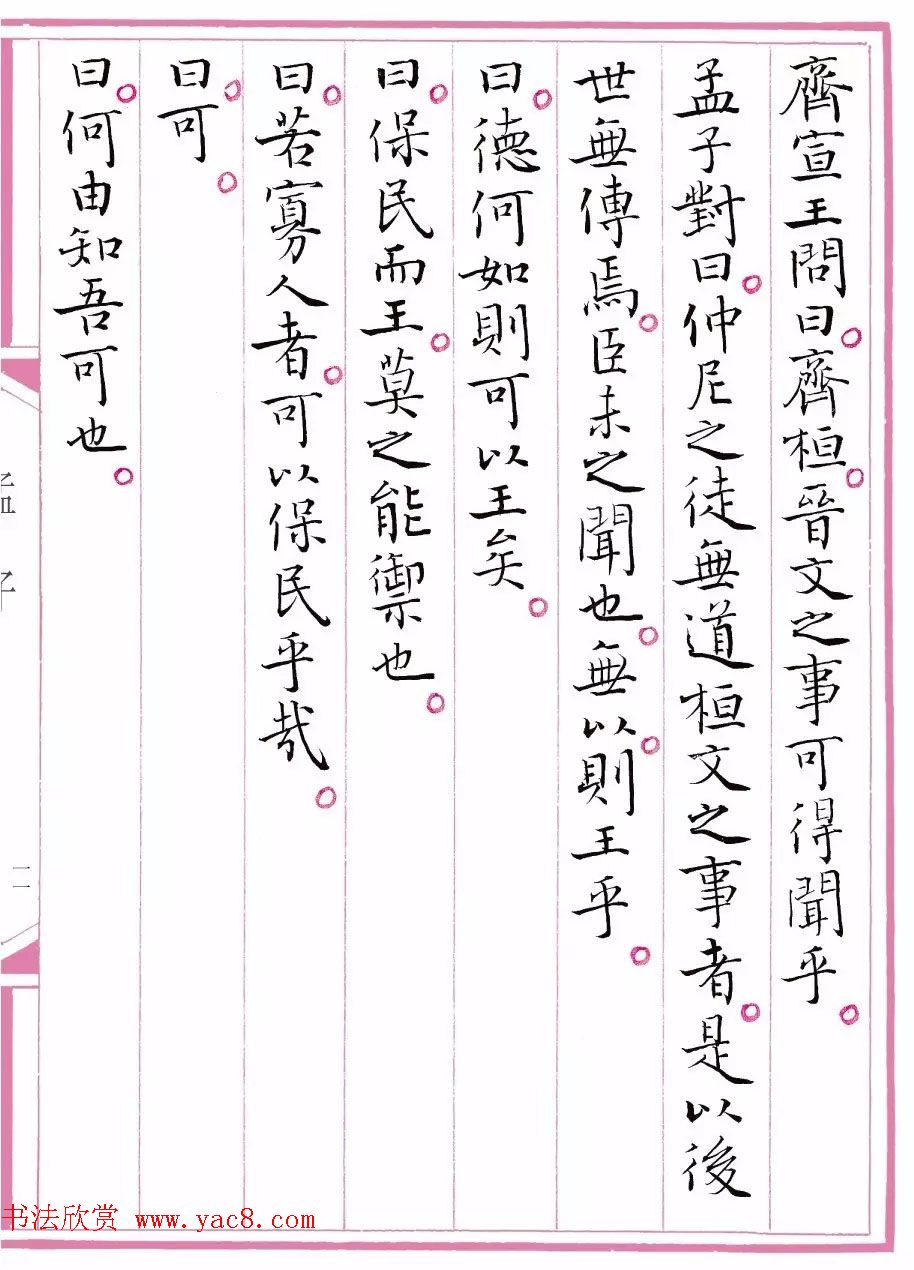 齊宣王問曰。齊桓。晉文之事可得聞乎。
孟子對曰。仲尼之徒無道桓文之事者。是以後
世無傳焉。臣未之聞也。無以。則王乎。
曰。德何如則可以王矣。
曰。保民而王。莫之能禦也。
曰。若寡人者。可以保民乎哉。
曰。可。
曰。何由知吾可也。
孟子
二
书法欣赏 www.yac8.com